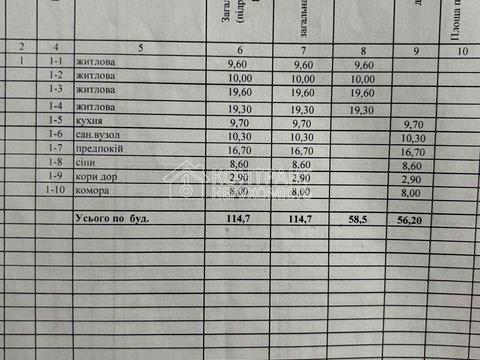 Зага
(підр
загальна
д
Площа п
2 4 5 6 7 8 9 10
1 1-1 житлова 9,60 9,60 9,60
1-2 житлова 10,00 10,00 10,00
1-3 житлова 19,60 19,60 19,60
1-4 житлова 19,30 19,30 19,30
1-5 кухня 9,70 9,70 9,70
1-6 сан.вузол 10,30 10,30 10,30
1-7 предпокій 16,70 16,70 16,70
1-8 сіни 8,60 8,60 8,60
1-9 кори дор 2,90 2,90 2,90
1-10 комора 8,00 8,00 8,00
Усього по буд. 114,7 114,7 58,5 56,20
КОНТРАКТ
НЕРУХОМІСТЬ